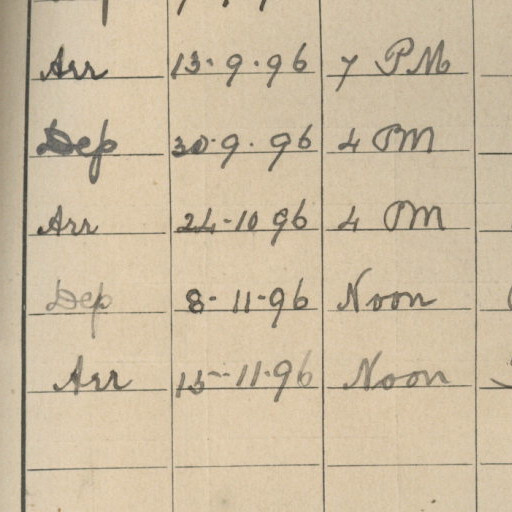 Arr 13.9.96 7 PM
Dep 30.9.96 4 PM
Arr 24-10 96 4 PM
Dep 8-11-96 Noon
Arr 15-11-96 Noon